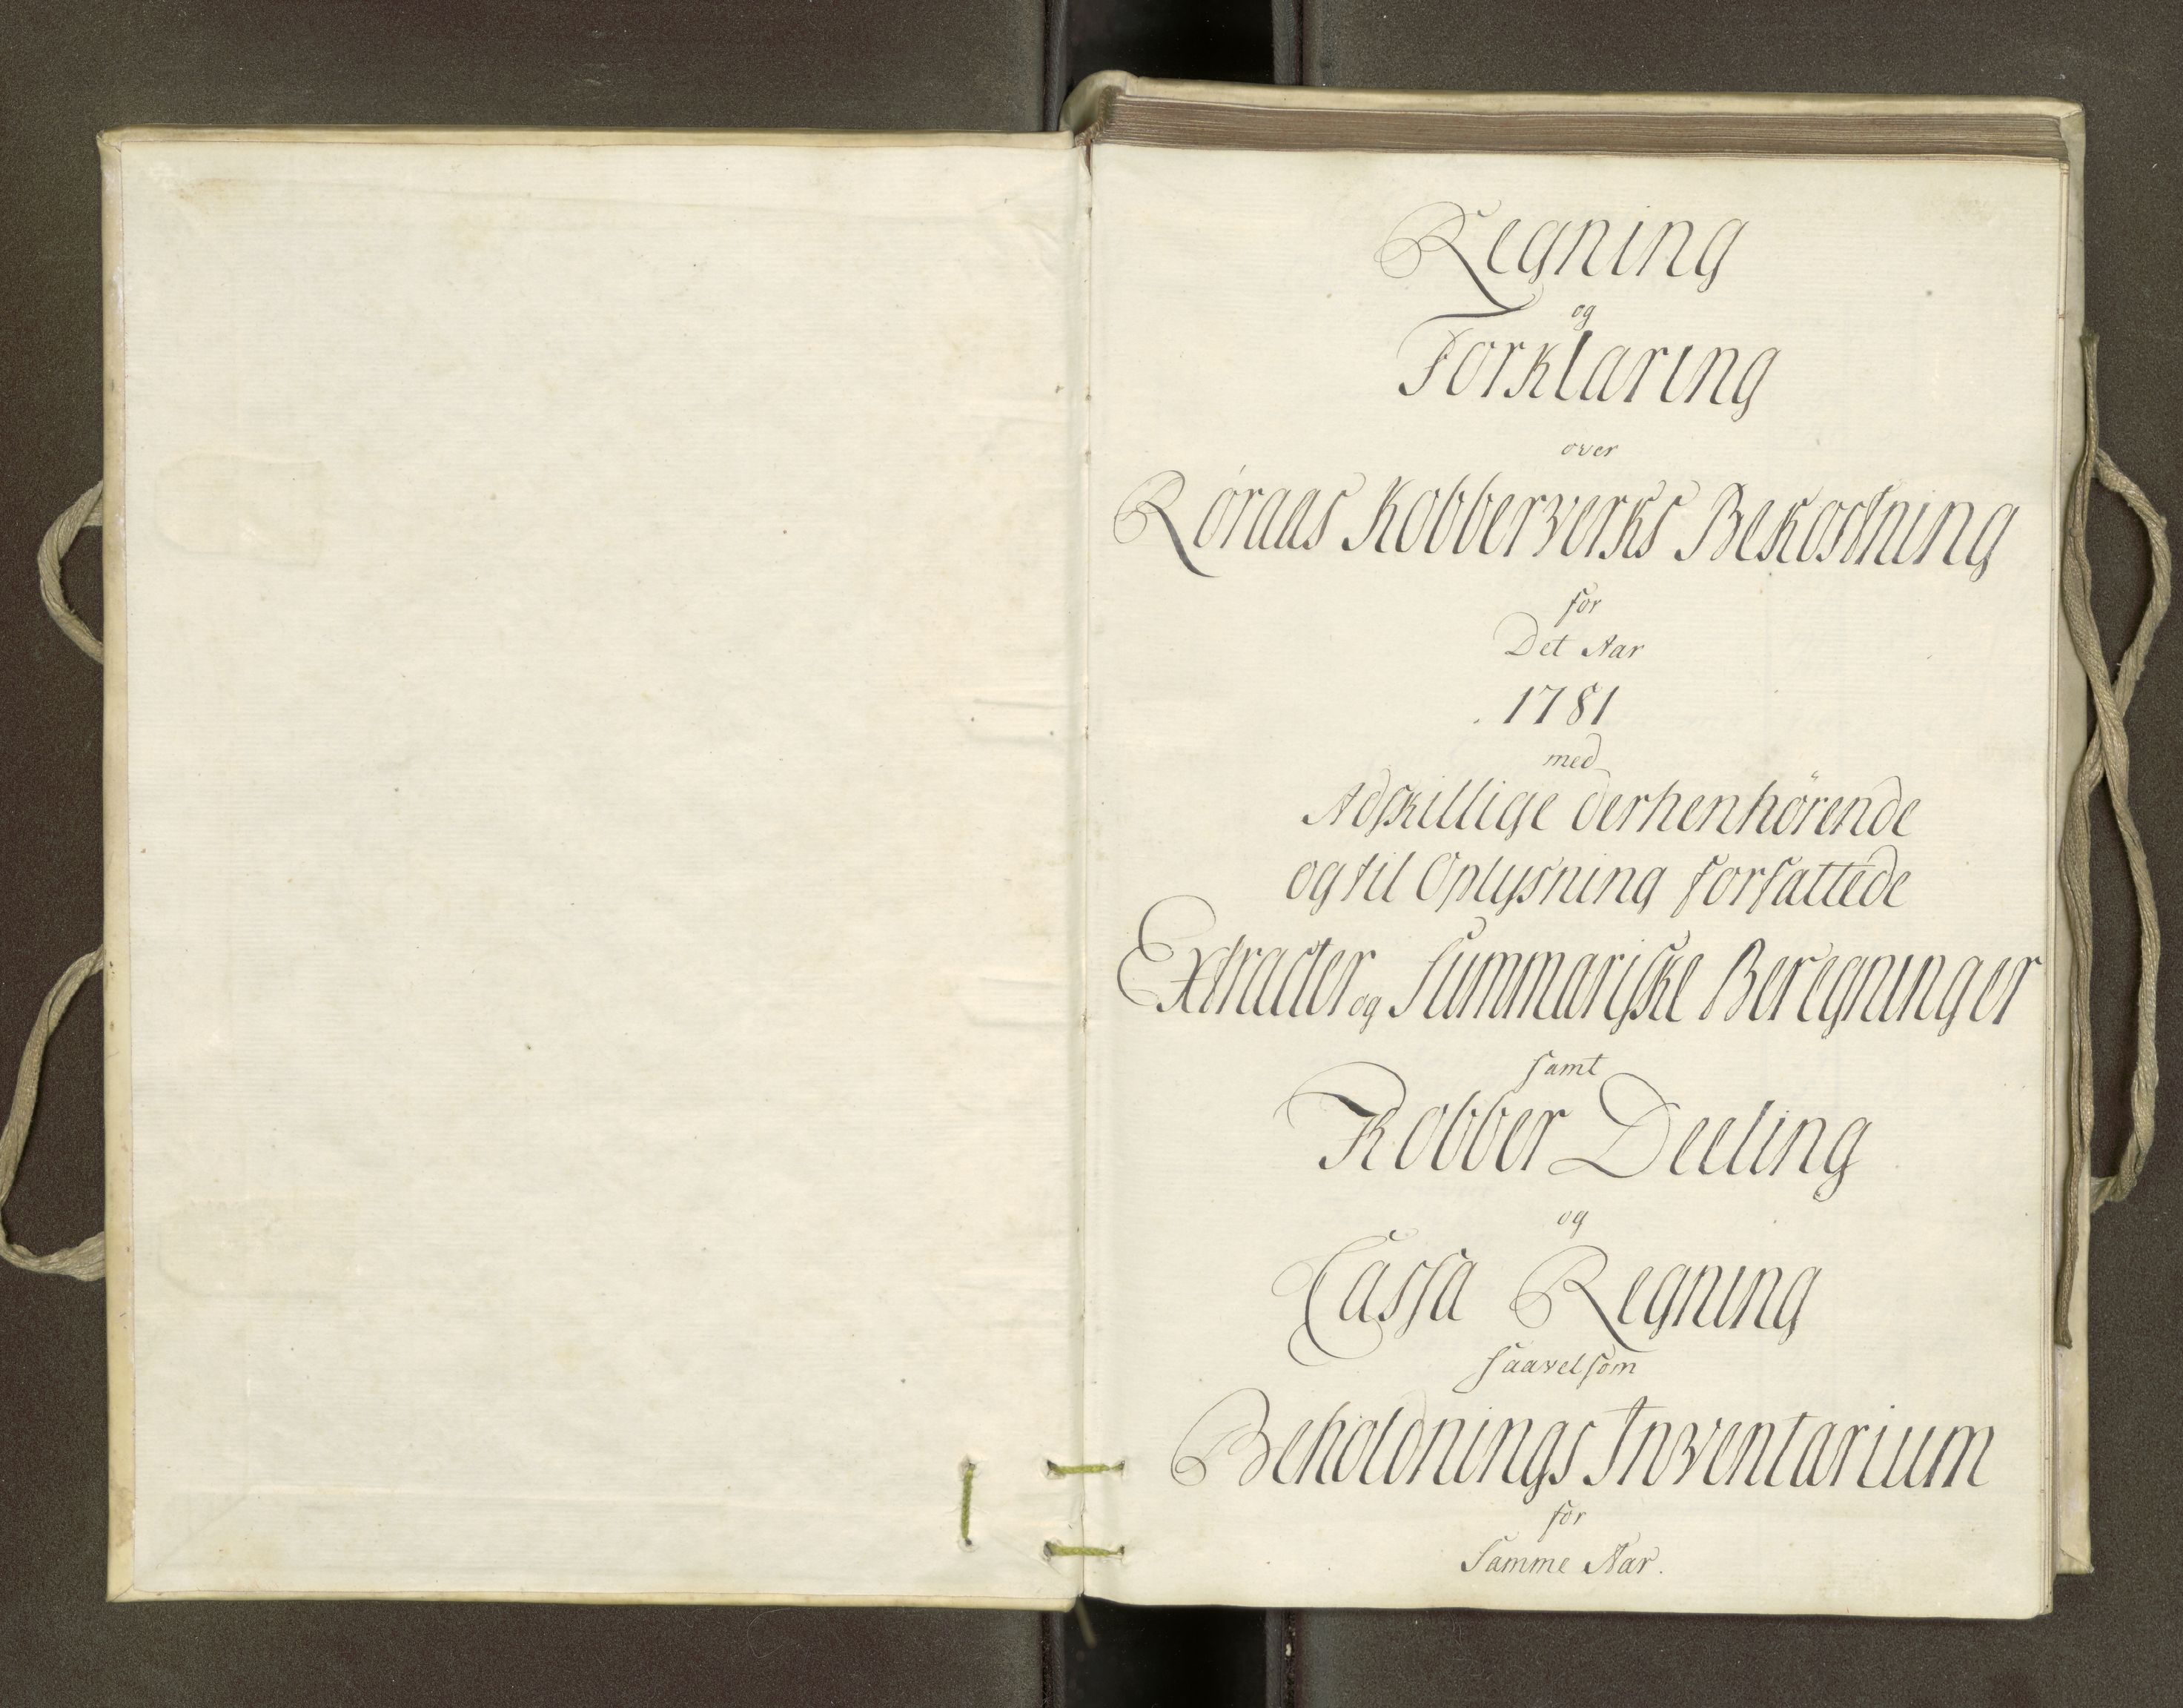 Regning
og
Forklaring
over
Røraas Kobberverks Bekostning
for
Det Aar
1781
med
Adskillige derhenhörende
og til Oplysning forfattede
Extracter og Summariske Beregninger
samt
Kobber Deeling
og
Cassa Regning
saavelsom
Beholdnings Inventarium
for
Samme Aar.